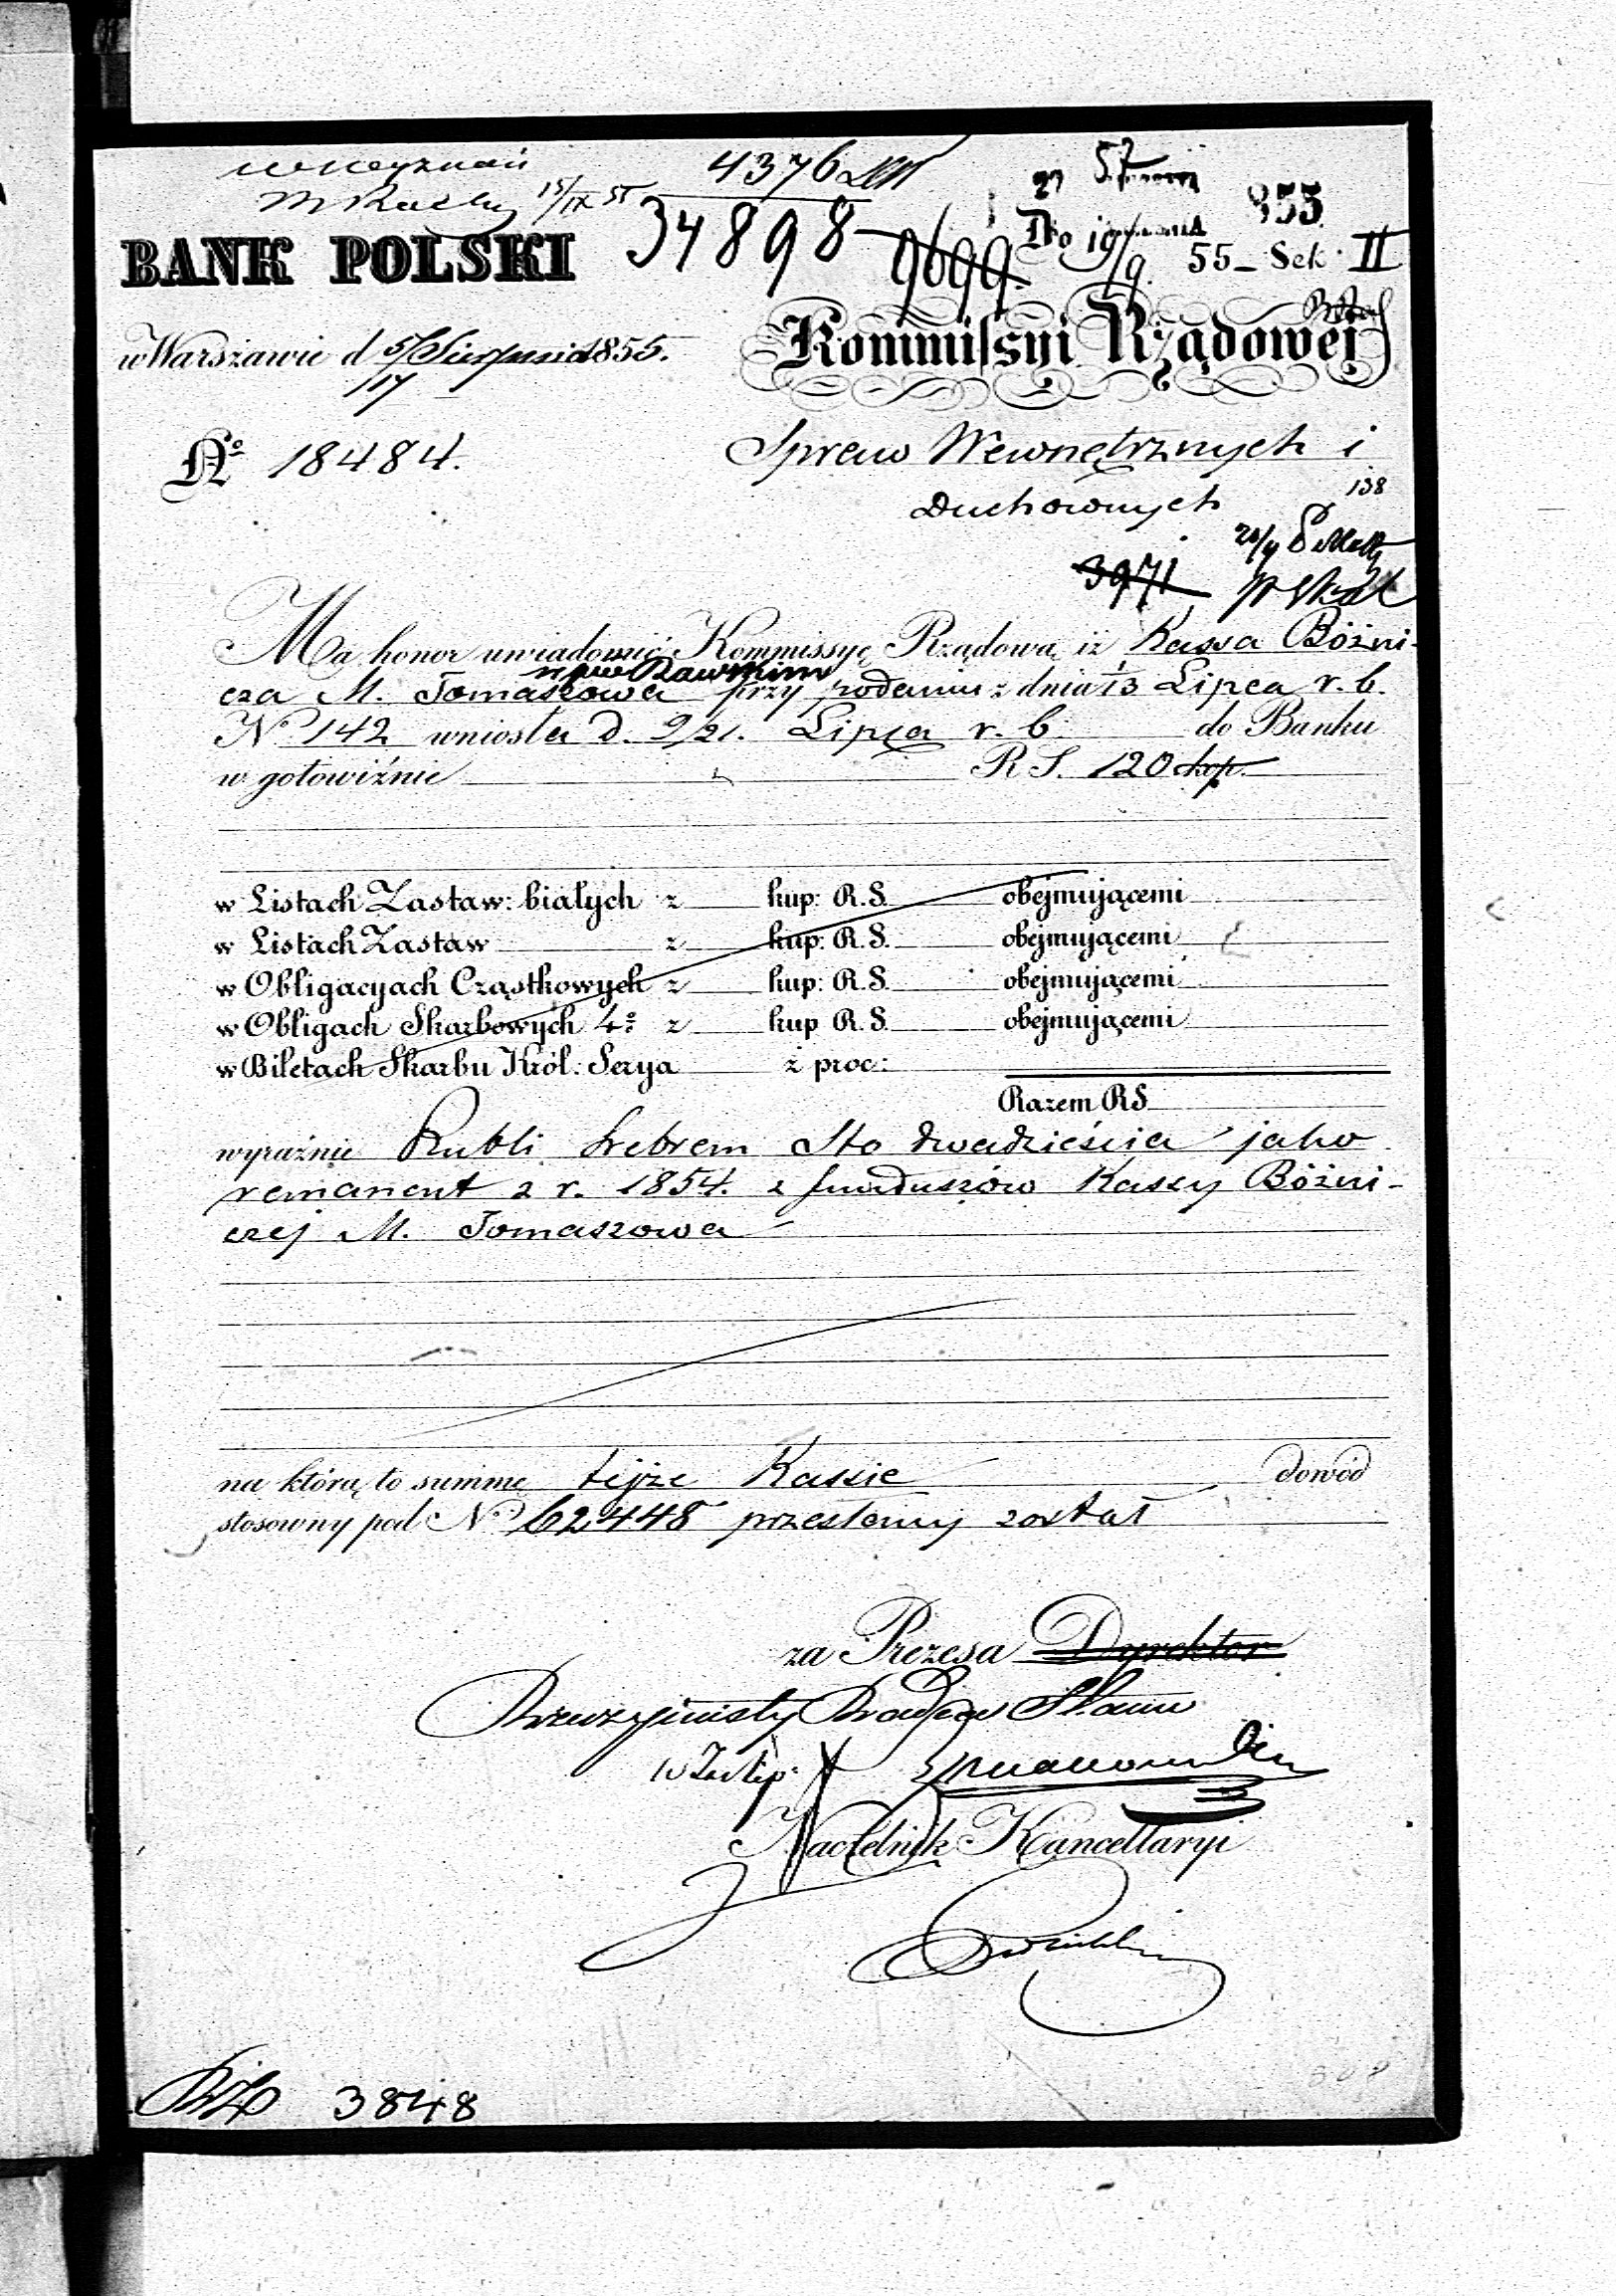 4376
15/IX 55
34898
9699.
57
855.
Do 19/9 55 – Sek. II
BANK POLSKI
w Warszawie d 5/17 Sierpnia 1855.
Kommissyi Rządowej
No 18484.
Spraw Wewnętrznych i
Duchownych
138
3971
Ma honor uwiadomić Kommissyę Rządową, iż Kassa Bóżni-
w pcie Rawskim
cza M. Tomaszowa przy podaniu z dnia 1/13 Lipca r. b.
No 142 wniosła d. 9/21. Lipca r. b. do Banku
w gotowiźnie R S. 120 kop.
w Listach Zastaw: białych z kup: R.S. obejmującemi
w Listach Zastaw z kup: R.S. obejmującemi
w Obligacyach Cząstkowych z kup: R.S. obejmującemi
w Obligach Skarbowych 4o z kup R.S. obejmującemi
w Biletach Skarbu Król: Serya z proc:
Razem RS
wyraźnie Rubli Srebrem Sto dwadzieścia jako
remanent z r. 1854. z funduszów Kassy Bóżni-
czej M. Tomaszowa
na którą to summę tejże Kassie dowód
stosowny pod No 62448 przesłany został
za Prezesa Dyrektor
Rzeczywisty Radca Stanu
w Zastęp.
Naczelnik Kancellaryi
3848